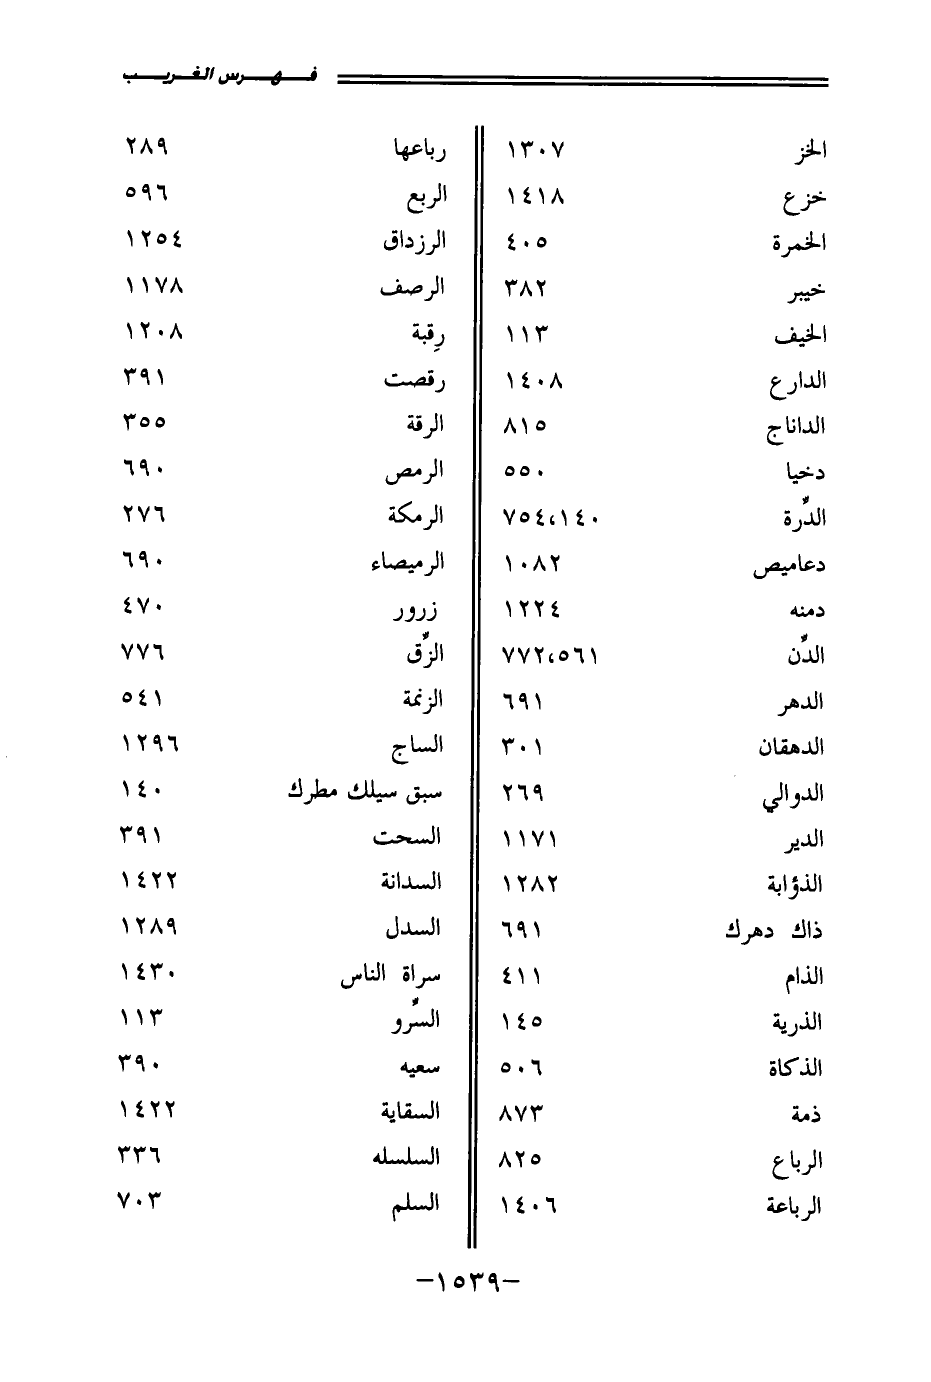 فهرس الغريب
الخز ١٣٠٧
خزع ١٤١٨
الخمرة ٤٠٥
خيبر ٣٨٢
الخيف ١١٣
الدارع ١٤٠٨
الداناج ٨١٥
دخيا ٥٥٠
الدِّرة ٧٥٤،١٤٠
دعاميص ١٠٨٢
دمنه ١٢٢٤
الدِّن ٧٧٢،٥٦١
الدهر ٦٩١
الدهقان ٣٠١
الدوالي ٢٦٩
الدير ١١٧١
الذؤابة ١٢٨٢
ذاك دهرك ٦٩١
الذام ٤١١
الذرية ١٤٥
الذكاة ٥٠٦
ذمة ٨٧٣
الرباع ٨٢٥
الرباعة ١٤٠٦
رباعها ٢٨٩
الربع ٥٩٦
الرزداق ١٢٥٤
الرصف ١١٧٨
رِقبة ١٢٠٨
رقصت ٣٩١
الرقة ٣٥٥
الرمص ٦٩٠
الرمكة ٢٧٦
الرميصاء ٦٩٠
زرور ٤٧٠
الزِّق ٧٧٦
الزنمة ٥٤١
الساج ١٢٩٦
سبق سيلك مطرك ١٤٠
السحت ٣٩١
السدانة ١٤٢٢
السدل ١٢٨٩
سراة الناس ١٤٣٠
السِّرو ١١٣
سعيه ٣٩٠
السقاية ١٤٢٢
السلسله ٣٣٦
السلم ٧٠٣
-١٥٣٩-